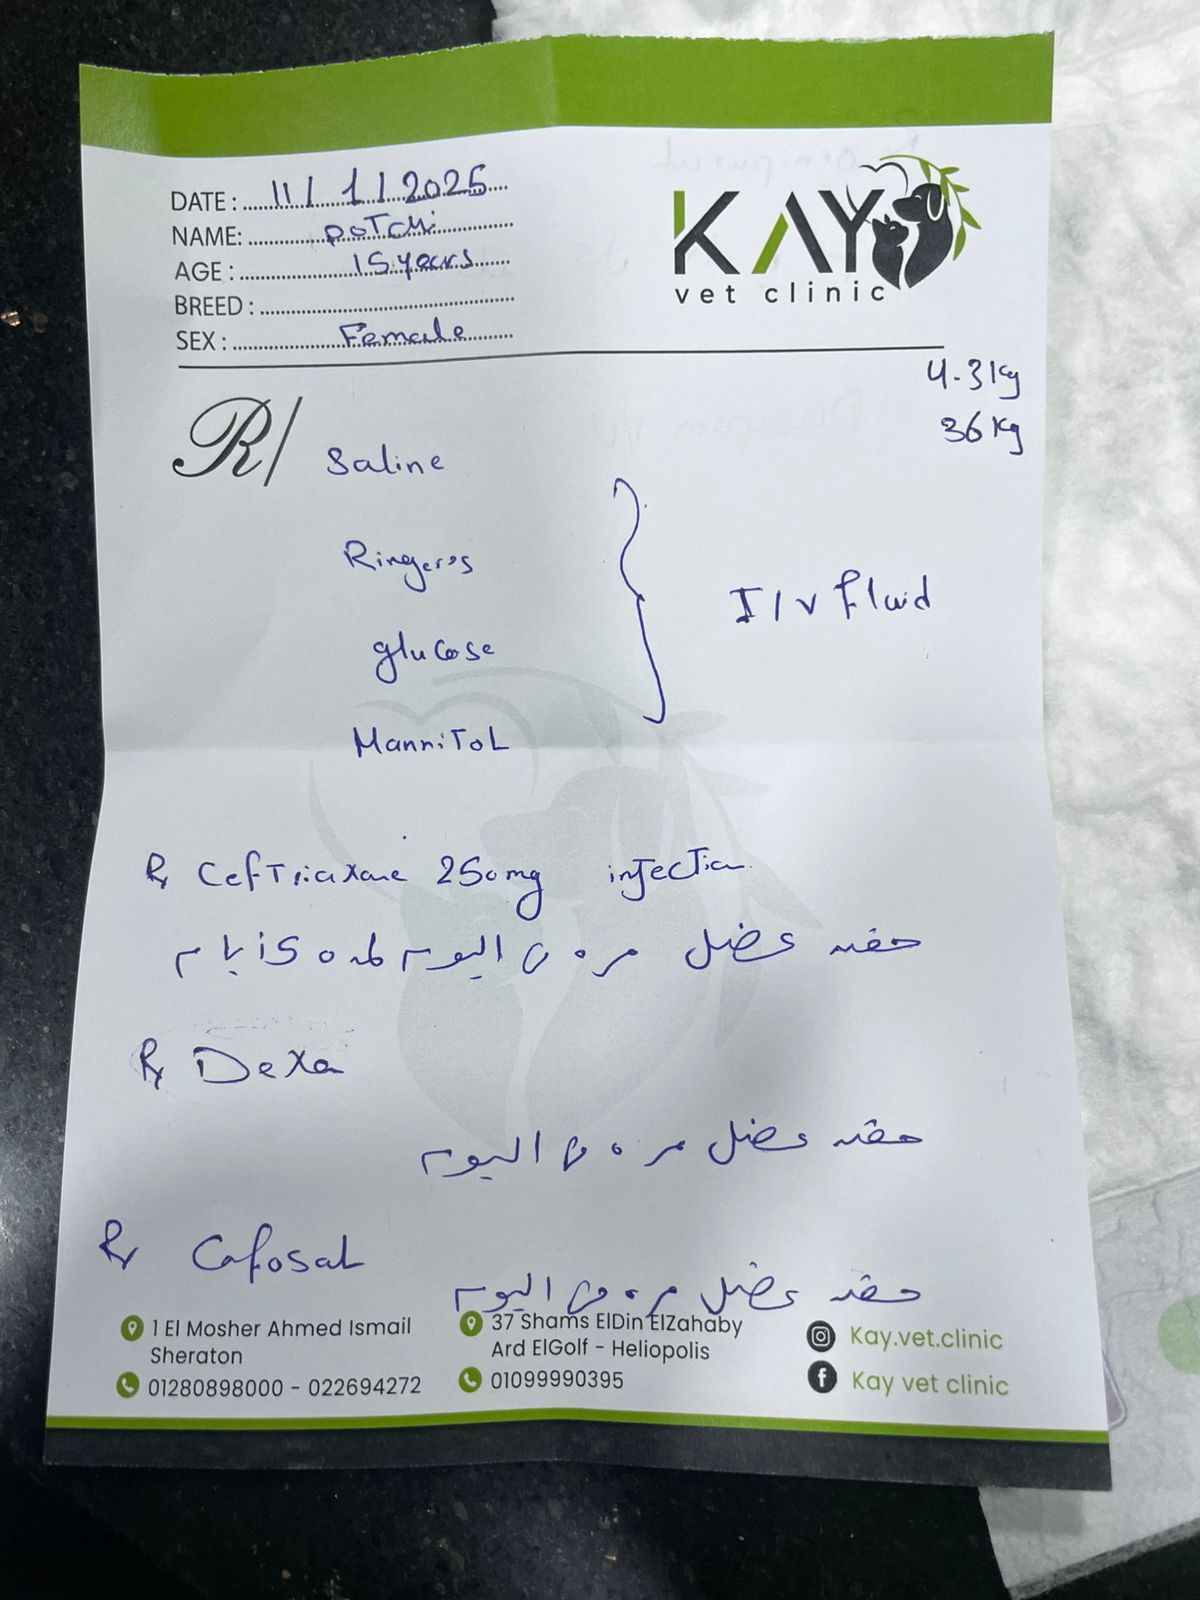 DATE : 11 / 1 / 2025
NAME: potchi
AGE : 15 years
BREED :
SEX : Female
KAY
vet clinic
4.3 Kg
36 Kg
R/ Saline
Ringer's
glucose
Mannitol
I/V fluid
R Ceftriaxone 250mg injection
حقنه عضل مره فى اليوم لمده 5 أيام
R Dexa
حقنه عضل مره فى اليوم
R Cafosal
حقنه عضل مره فى اليوم
1 El Mosher Ahmed Ismail
Sheraton
01280898000 - 022694272
37 Shams ElDin ElZahaby
Ard ElGolf - Heliopolis
01099990395
Kay.vet.clinic
Kay vet clinic